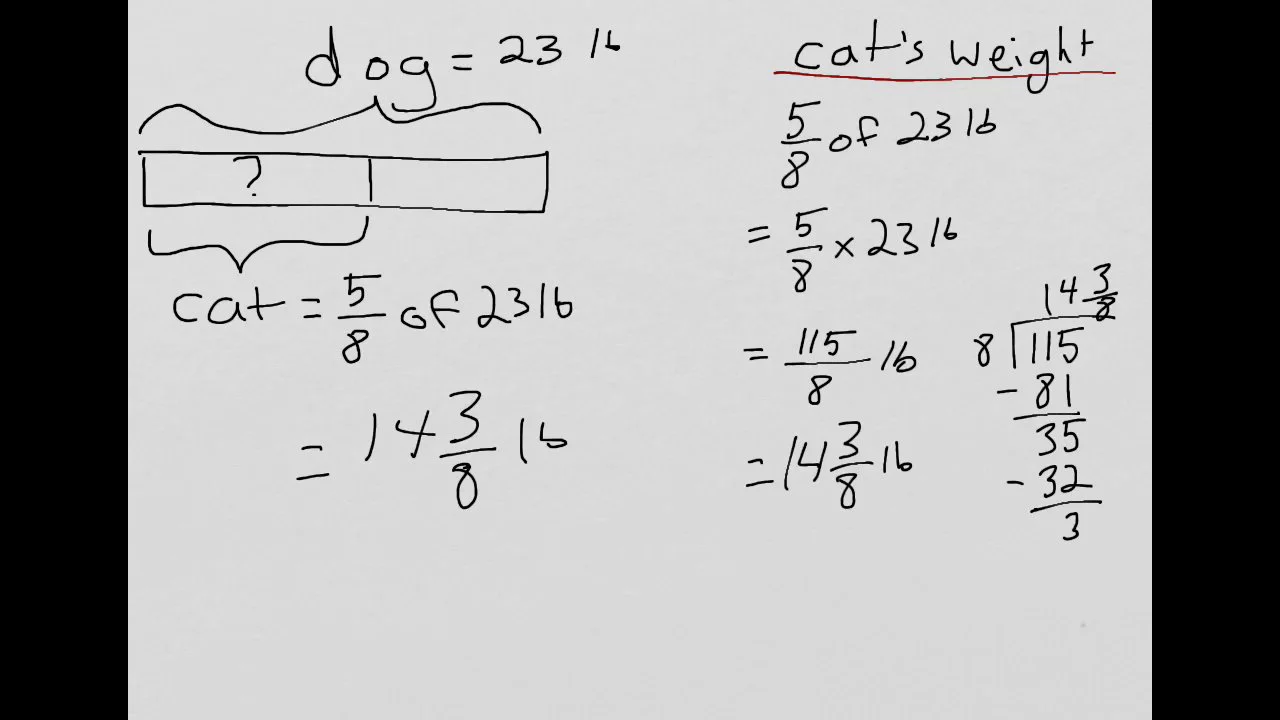 dog = 23 lb
?
cat = 5/8 of 23 lb
= 14 3/8 lb
cat's weight
5/8 of 23 lb
= 5/8 x 23 lb
= 115/8 lb
= 14 3/8 lb
14 3/8
8 115
- 81
35
- 32
3